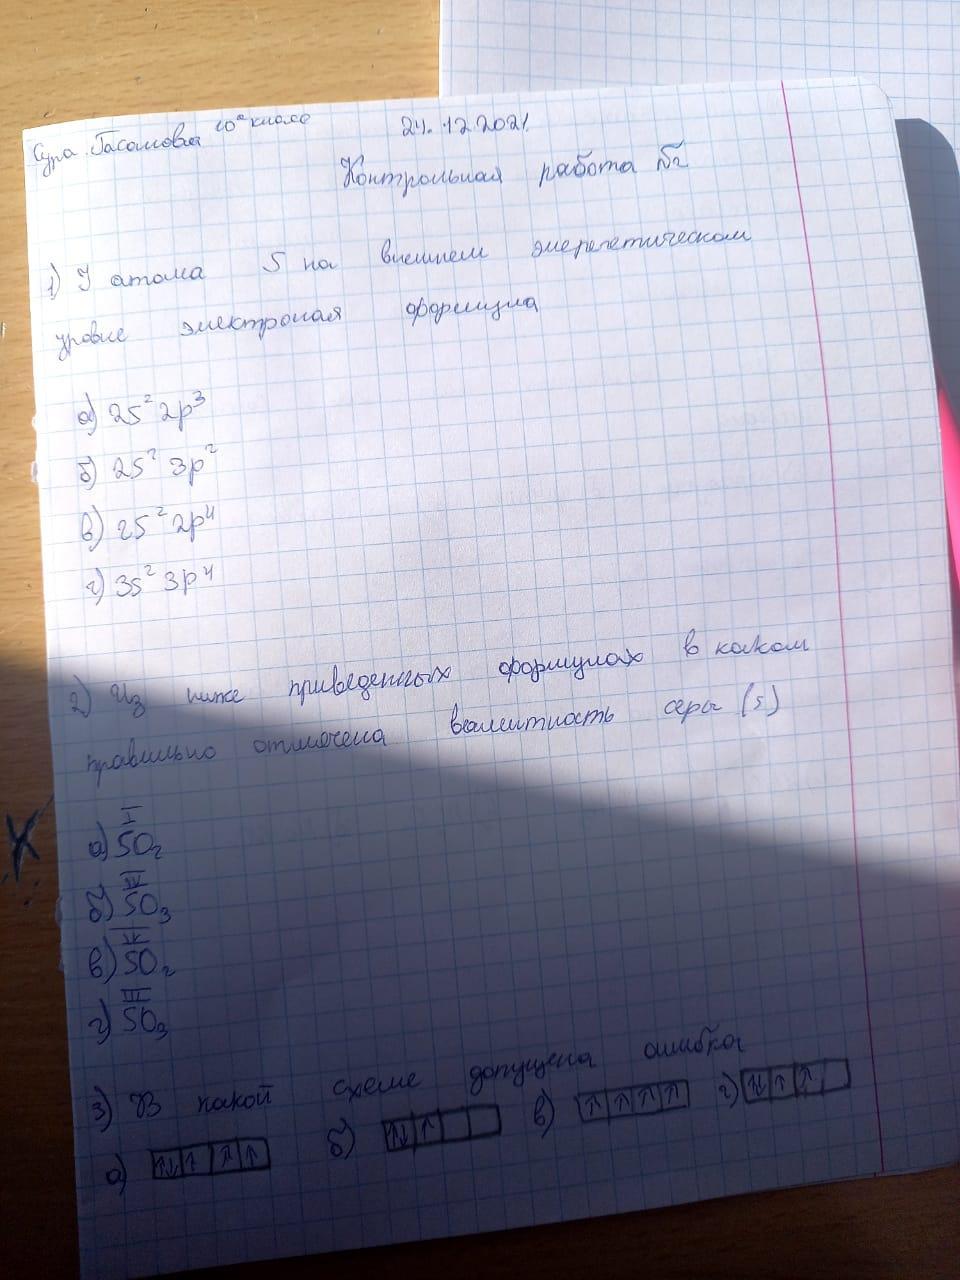 Сура Гасымова 10ª класс 24.12.2021
Контрольная работа №2
1) У атома S на внешнем энергетическом
уровне электроная формула
а) 2s² 2p³
б) 2s² 3p²
в) 2s² 2p⁴
г) 3s² 3p⁴
2) Из ниже приведенных формулах в каком
правильно отмечена валентность серы (S)
I
а) SO₂
IV
б) SO₃
IV
в) SO₂
III
г) SO₃
3) В какой схеме допущена ошибка
а) ↑↓ ↑ ↑ ↑ б) ↑↓ ↑ в) ↑ ↑ ↑ ↑ г) ↑↓ ↑ ↑